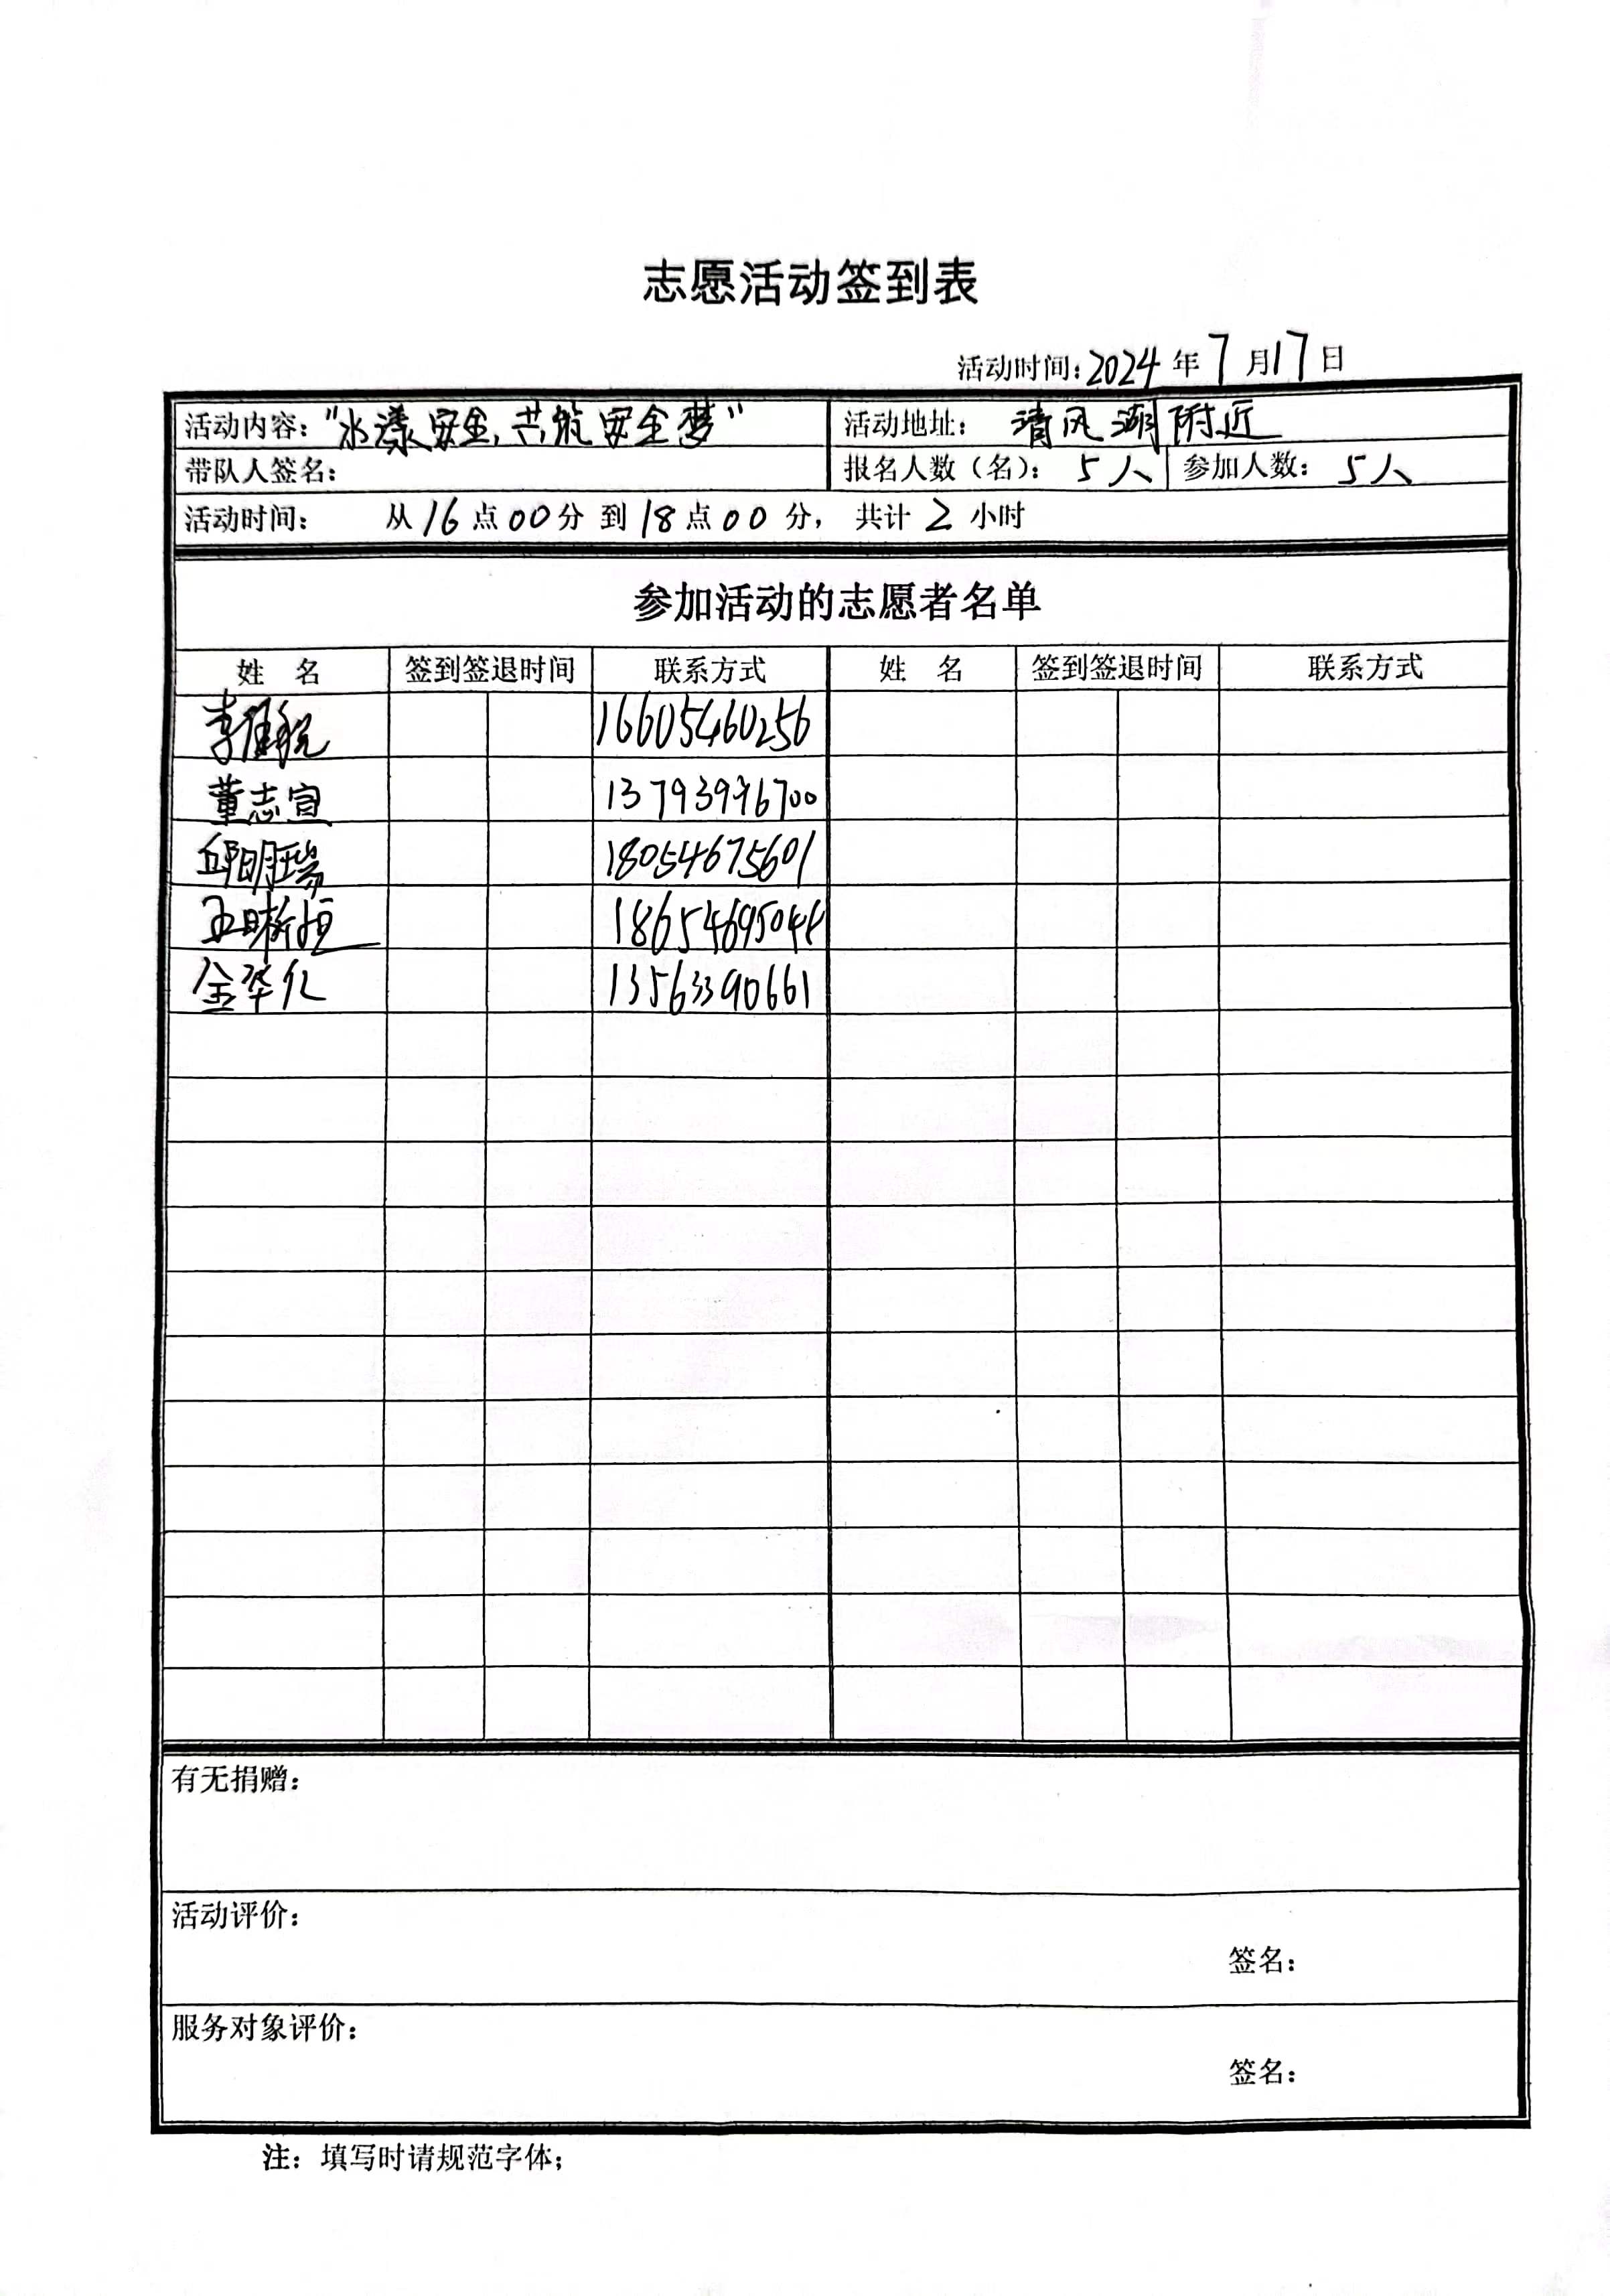 志愿活动签到表
活动时间:2024年7月17日
活动内容:“水漾安全,共筑安全梦” 活动地址: 清风湖附近
带队人签名: 报名人数(名): 5人 参加人数: 5人
活动时间: 从16点00分到18点00分, 共计2小时
参加活动的志愿者名单
姓 名 签到签退时间 联系方式 姓 名 签到签退时间 联系方式
16605460256
董志宣
邱明瑞 18054675601
金华仁 13563390661
有无捐赠:
活动评价:
签名:
服务对象评价:
签名:
注: 填写时请规范字体;